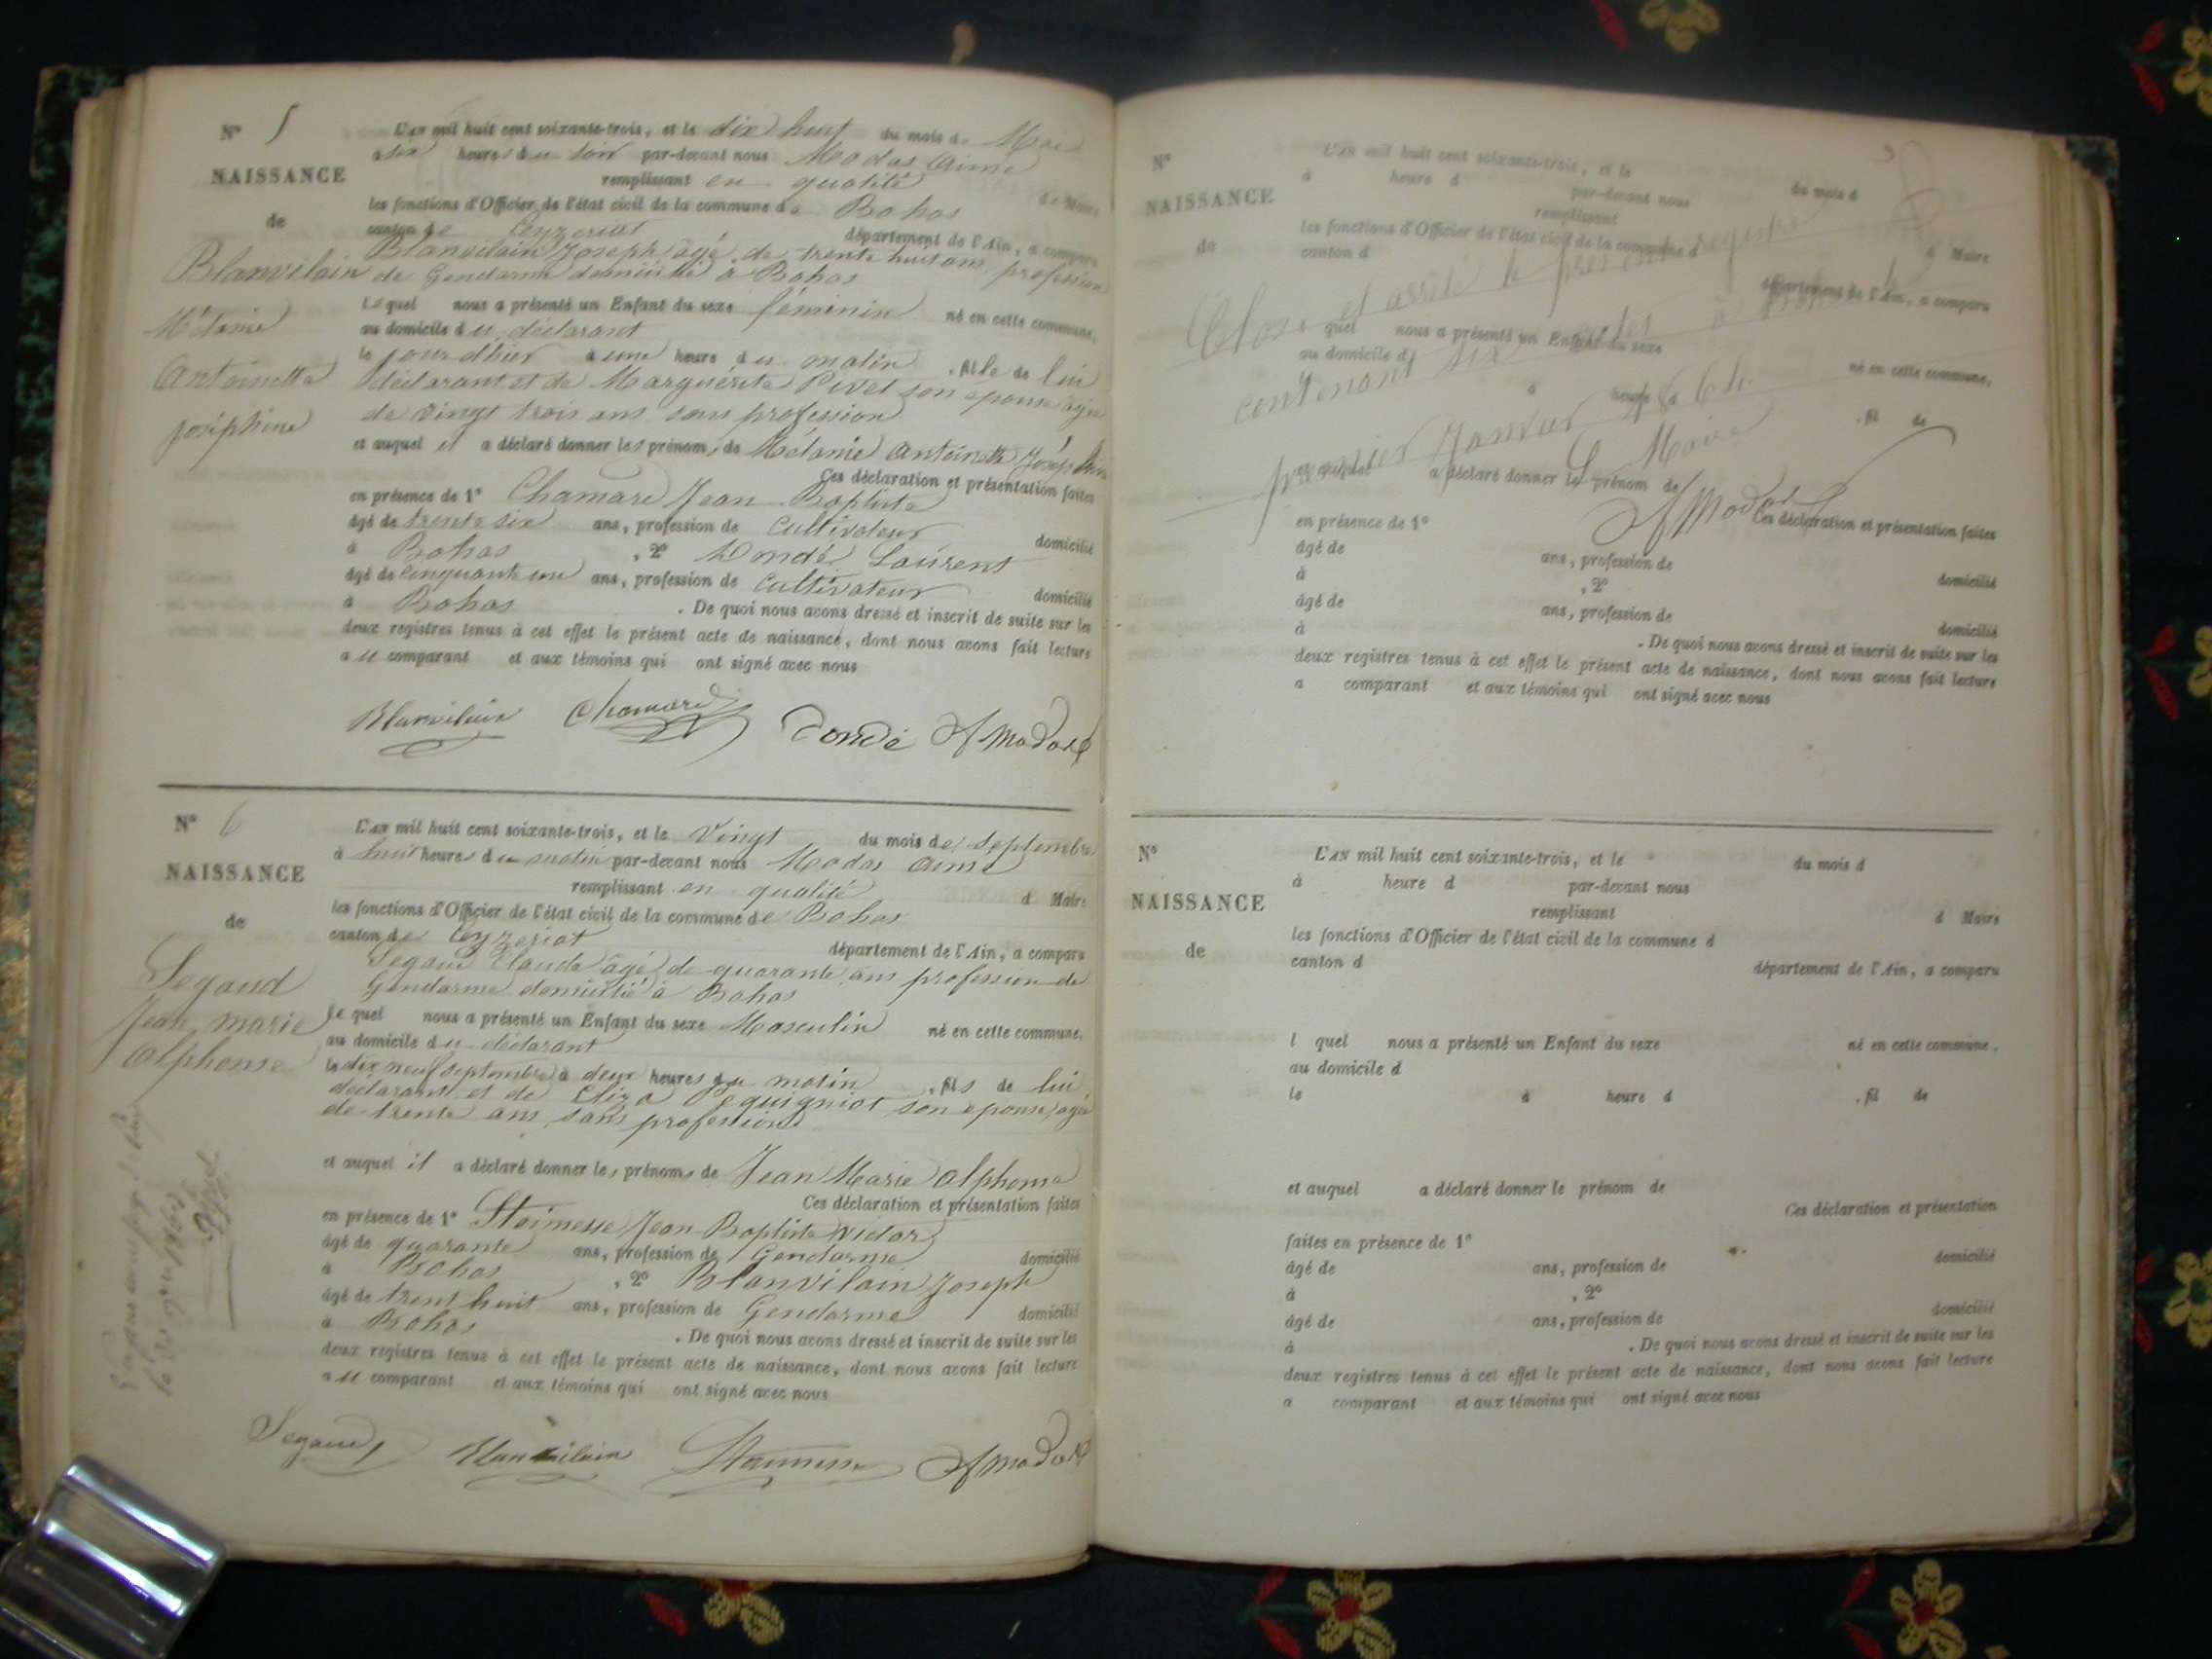 N° 5
NAISSANCE
de
Blanvilain
Mélanie
Antoinette
Joséphine
L'AN mil huit cent soixante-trois, et le dix huit du mois de Mai
à six heures du soir par-devant nous Modas Aimé
remplissant en qualité de Maire
les fonctions d'Officier de l'état civil de la commune de Bohas
canton de Ceyzeriat département de l'Ain, a comparu
Blanvilain Joseph âgé de trente huit ans profession
de Gendarme domicilié à Bohas
Lequel nous a présenté un Enfant du sexe féminin né en cette commune,
au domicile du déclarant
le jour d'hier à une heure du matin , fille de lui
déclarant et de Marguérite Pivet son épouse âgée
de vingt trois ans sans profession
et auquel il a déclaré donner les prénoms de Mélanie Antoinette Joséphine
Ces déclaration et présentation faites
en présence de 1° Chamard Jean Baptiste
âgé de trente six ans, profession de Cultivateur domicilié
à Bohas , 2° Dondé Laurent
âgé de cinquante un ans, profession de Cultivateur domicilié
à Bohas . De quoi nous avons dressé et inscrit de suite sur les
deux registres tenus à cet effet le présent acte de naissance, dont nous avons fait lecture
au comparant et aux témoins qui ont signé avec nous
Blanvilain Chamard Dondé A Modas
N° 6
NAISSANCE
de
Segaud
Jean marie
alphonse
L'AN mil huit cent soixante-trois, et le Vingt du mois de septembre
à huit heures du matin par-devant nous Modas Aimé
remplissant en qualité d Maire
les fonctions d'Officier de l'état civil de la commune de Bohas
canton de Ceyzeriat département de l'Ain, a comparu
Segaud Claude âgé de quarante ans profession de
Gendarme domicilié à Bohas
Lequel nous a présenté un Enfant du sexe Masculin né en cette commune,
au domicile du déclarant
le dix neuf septembre à deux heures du matin , fils de lui
déclarant et de Eliza son épouse âgée
de trente ans sans profession
et auquel il a déclaré donner les prénoms de Jean Marie alphonse
Ces déclaration et présentation faites
en présence de 1° Staimesse Jean Baptiste Victor
âgé de quarante ans, profession de Gendarme domicilié
à Bohas , 2° Blanvilain Joseph
âgé de trent huit ans, profession de Gendarme domicilié
à Bohas . De quoi nous avons dressé et inscrit de suite sur les
deux registres tenus à cet effet le présent acte de naissance, dont nous avons fait lecture
au comparant et aux témoins qui ont signé avec nous
Segaud Blanvilain Staimesse A Modas
N°
NAISSANCE
de
L'AN mil huit cent soixante-trois, et le du mois d
à heure d par-devant nous
remplissant d Maire
les fonctions d'Officier de l'état civil de la commune d
canton d département de l'Ain, a comparu
l quel nous a présenté un Enfant du sexe né en cette commune,
au domicile d
le à heure d , fil de
et auquel a déclaré donner le prénom de
Ces déclaration et présentation faites
Clos et arrêté le présent registre
contenant six actes à Bohas le
premier Janvier 1864
Le Maire
A Modas
en présence de 1°
âgé de ans, profession de domicilié
à , 2°
âgé de ans, profession de domicilié
à . De quoi nous avons dressé et inscrit de suite sur les
deux registres tenus à cet effet le présent acte de naissance, dont nous avons fait lecture
a comparant et aux témoins qui ont signé avec nous
N°
NAISSANCE
de
L'AN mil huit cent soixante-trois, et le du mois d
à heure d par-devant nous
remplissant d Maire
les fonctions d'Officier de l'état civil de la commune d
canton d département de l'Ain, a comparu
l quel nous a présenté un Enfant du sexe né en cette commune,
au domicile d
le à heure d , fil de
et auquel a déclaré donner le prénom de
Ces déclaration et présentation
faites en présence de 1°
âgé de ans, profession de domicilié
à , 2°
âgé de ans, profession de domicilié
à . De quoi nous avons dressé et inscrit de suite sur les
deux registres tenus à cet effet le présent acte de naissance, dont nous avons fait lecture
a comparant et aux témoins qui ont signé avec nous